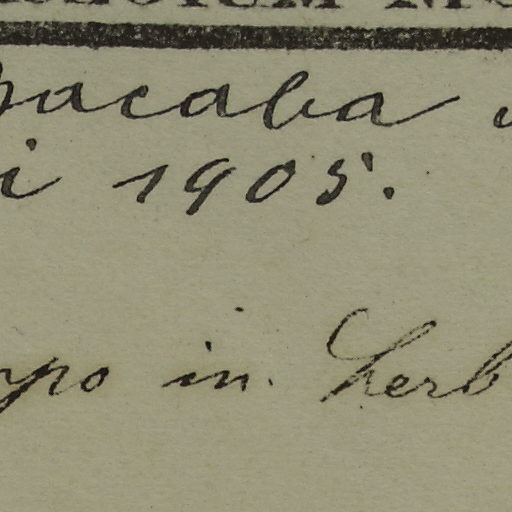 pacaba
i 1905.
ypo in. Herb